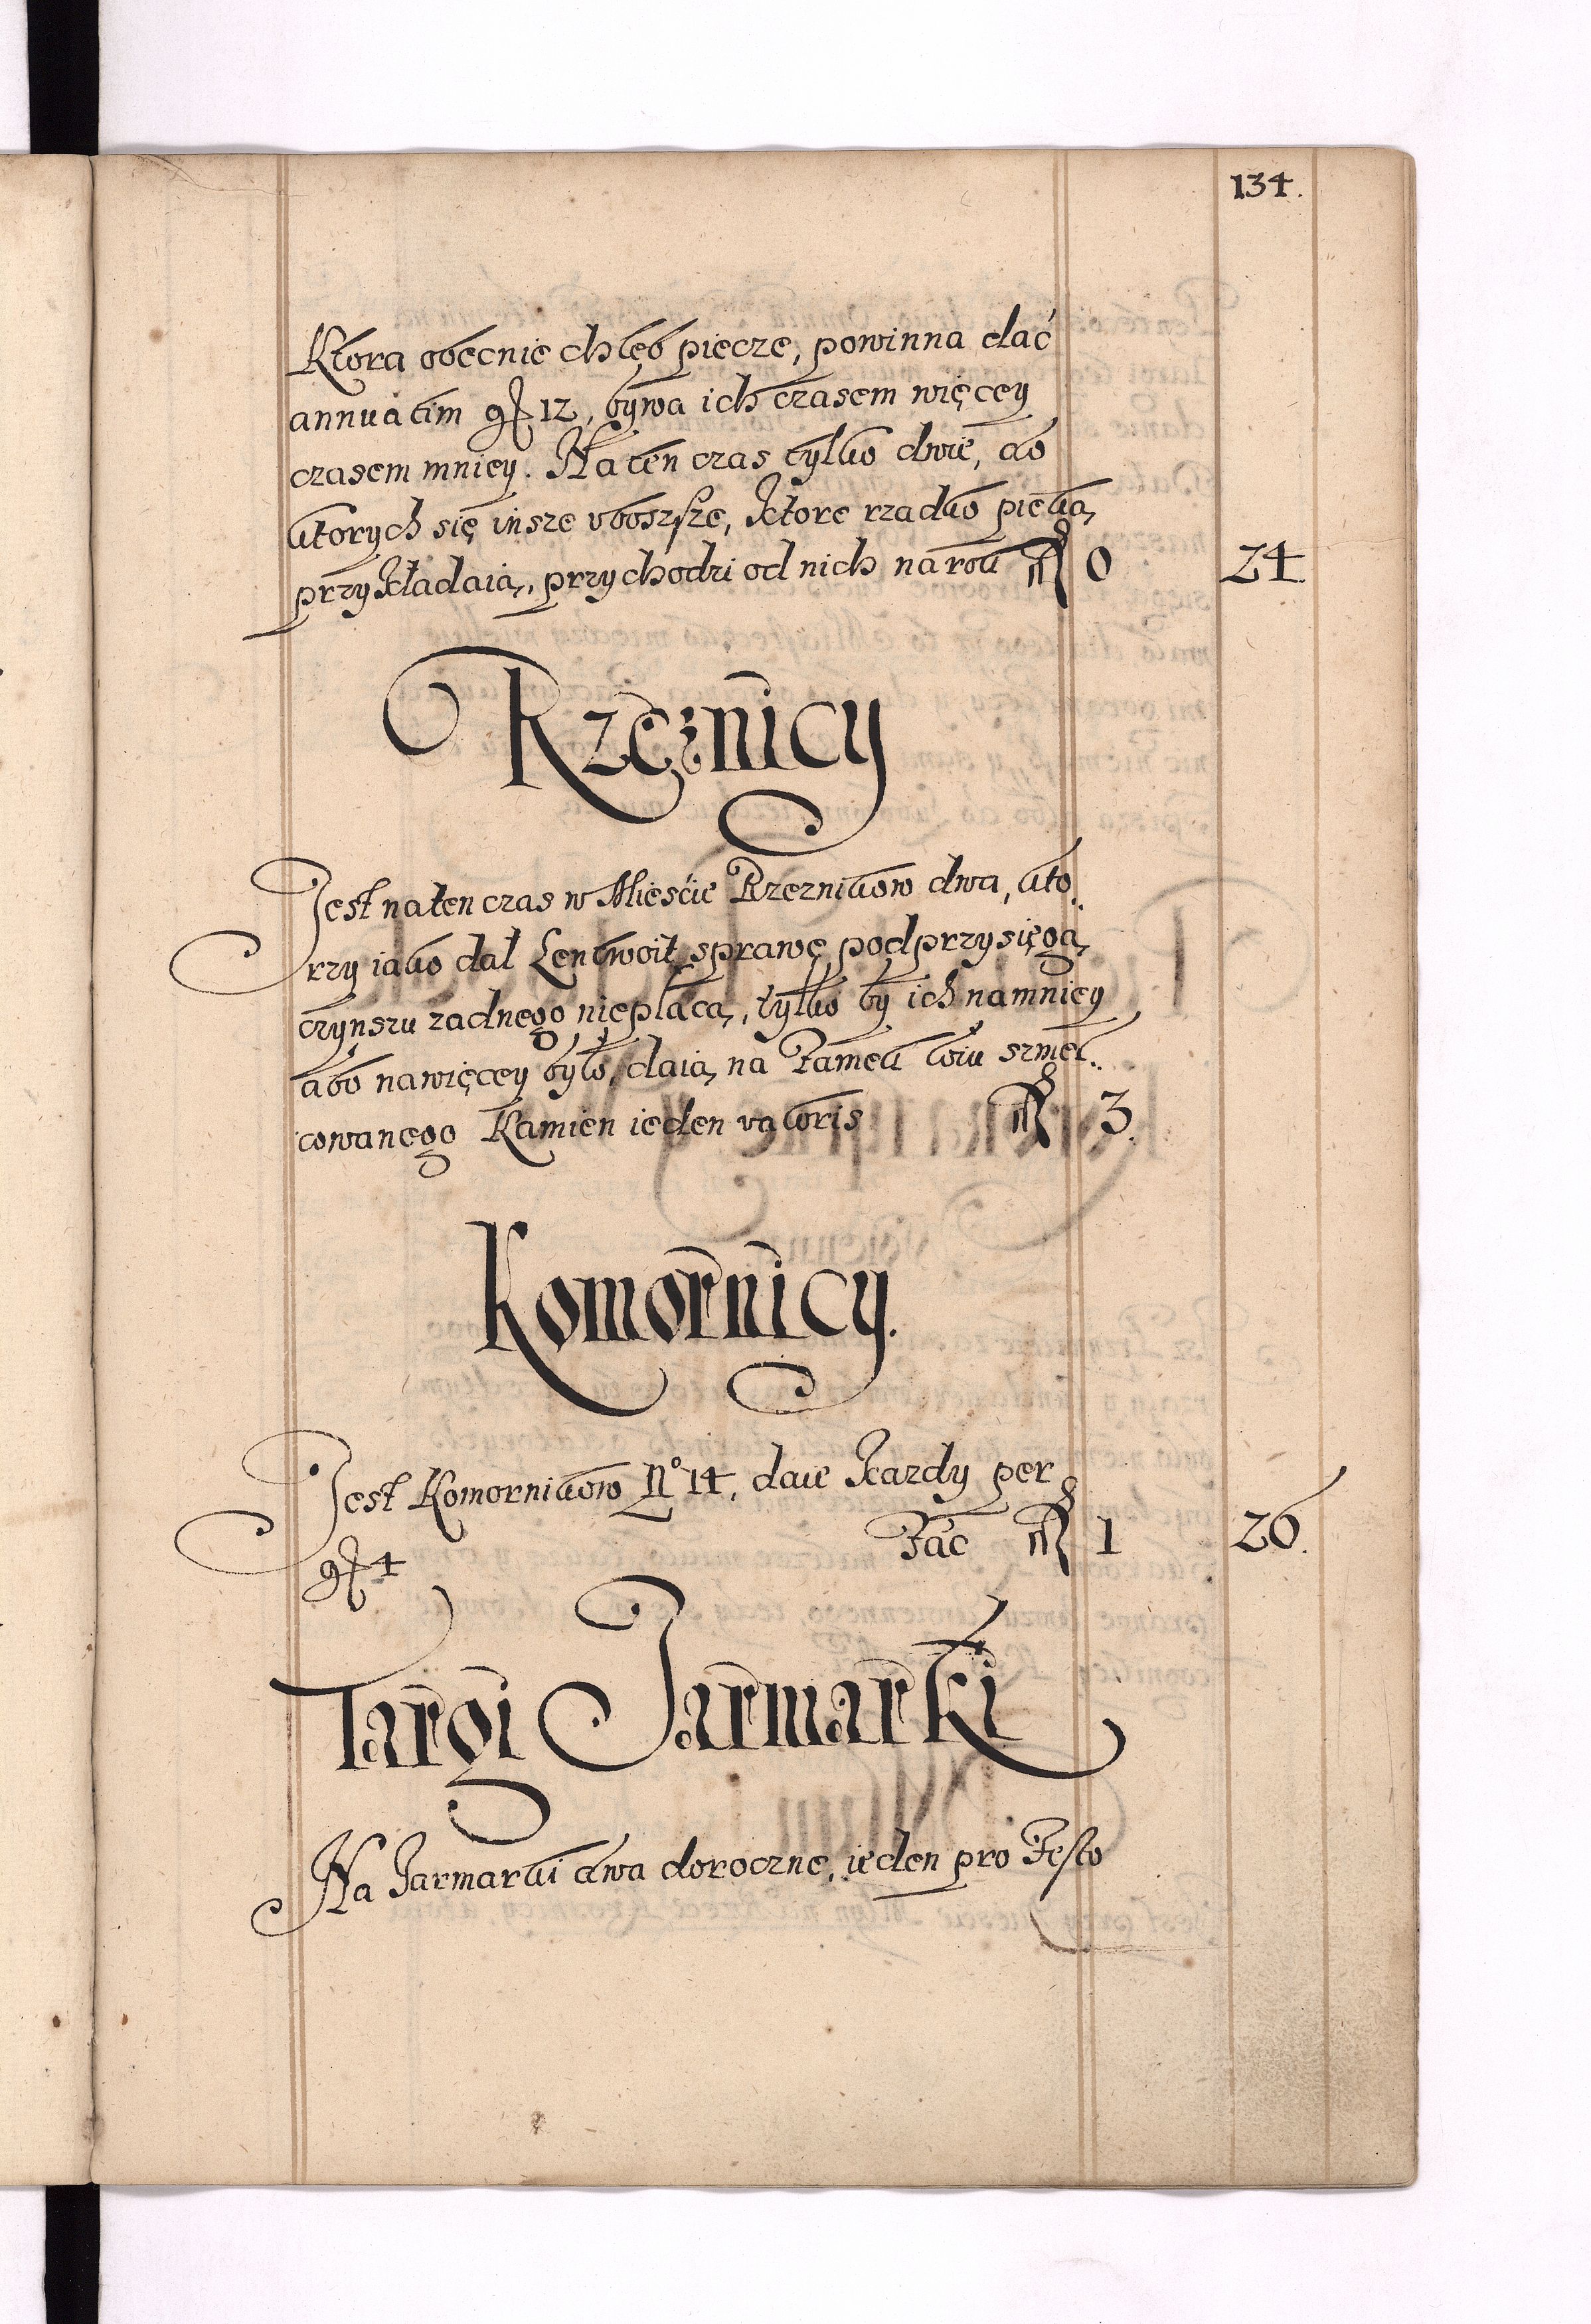 134.
Ktora obecnie chleb piecze, powinna dać
annuatim g 12, bywa ich czasem więcey
czasem mniey. Na ten czas tylko dwie, do
ktorych się insze uboszsze, ktore rzadko pieką,
przykładaią, przychodzi od nich na rok fl 0 24
Rzeznicy
Jest na ten czas w Mieście Rzeznikow dwa, kto
rzy iako dał Lentwoit sprawę pod przysięgą,
czynszu zadnego niepłacą, tylko by ich namniey
abo nawięcey było, daią na Zamek łoiu szmel..
cowanego Kamien ieden valoris fl 3.
Komornicy.
Jest Komornikow No 14, daie kazdy per
g 4 Fac fl 1 26.
Targi Jarmarki
Na Jarmarki dwa doroczne, ieden pro Festo